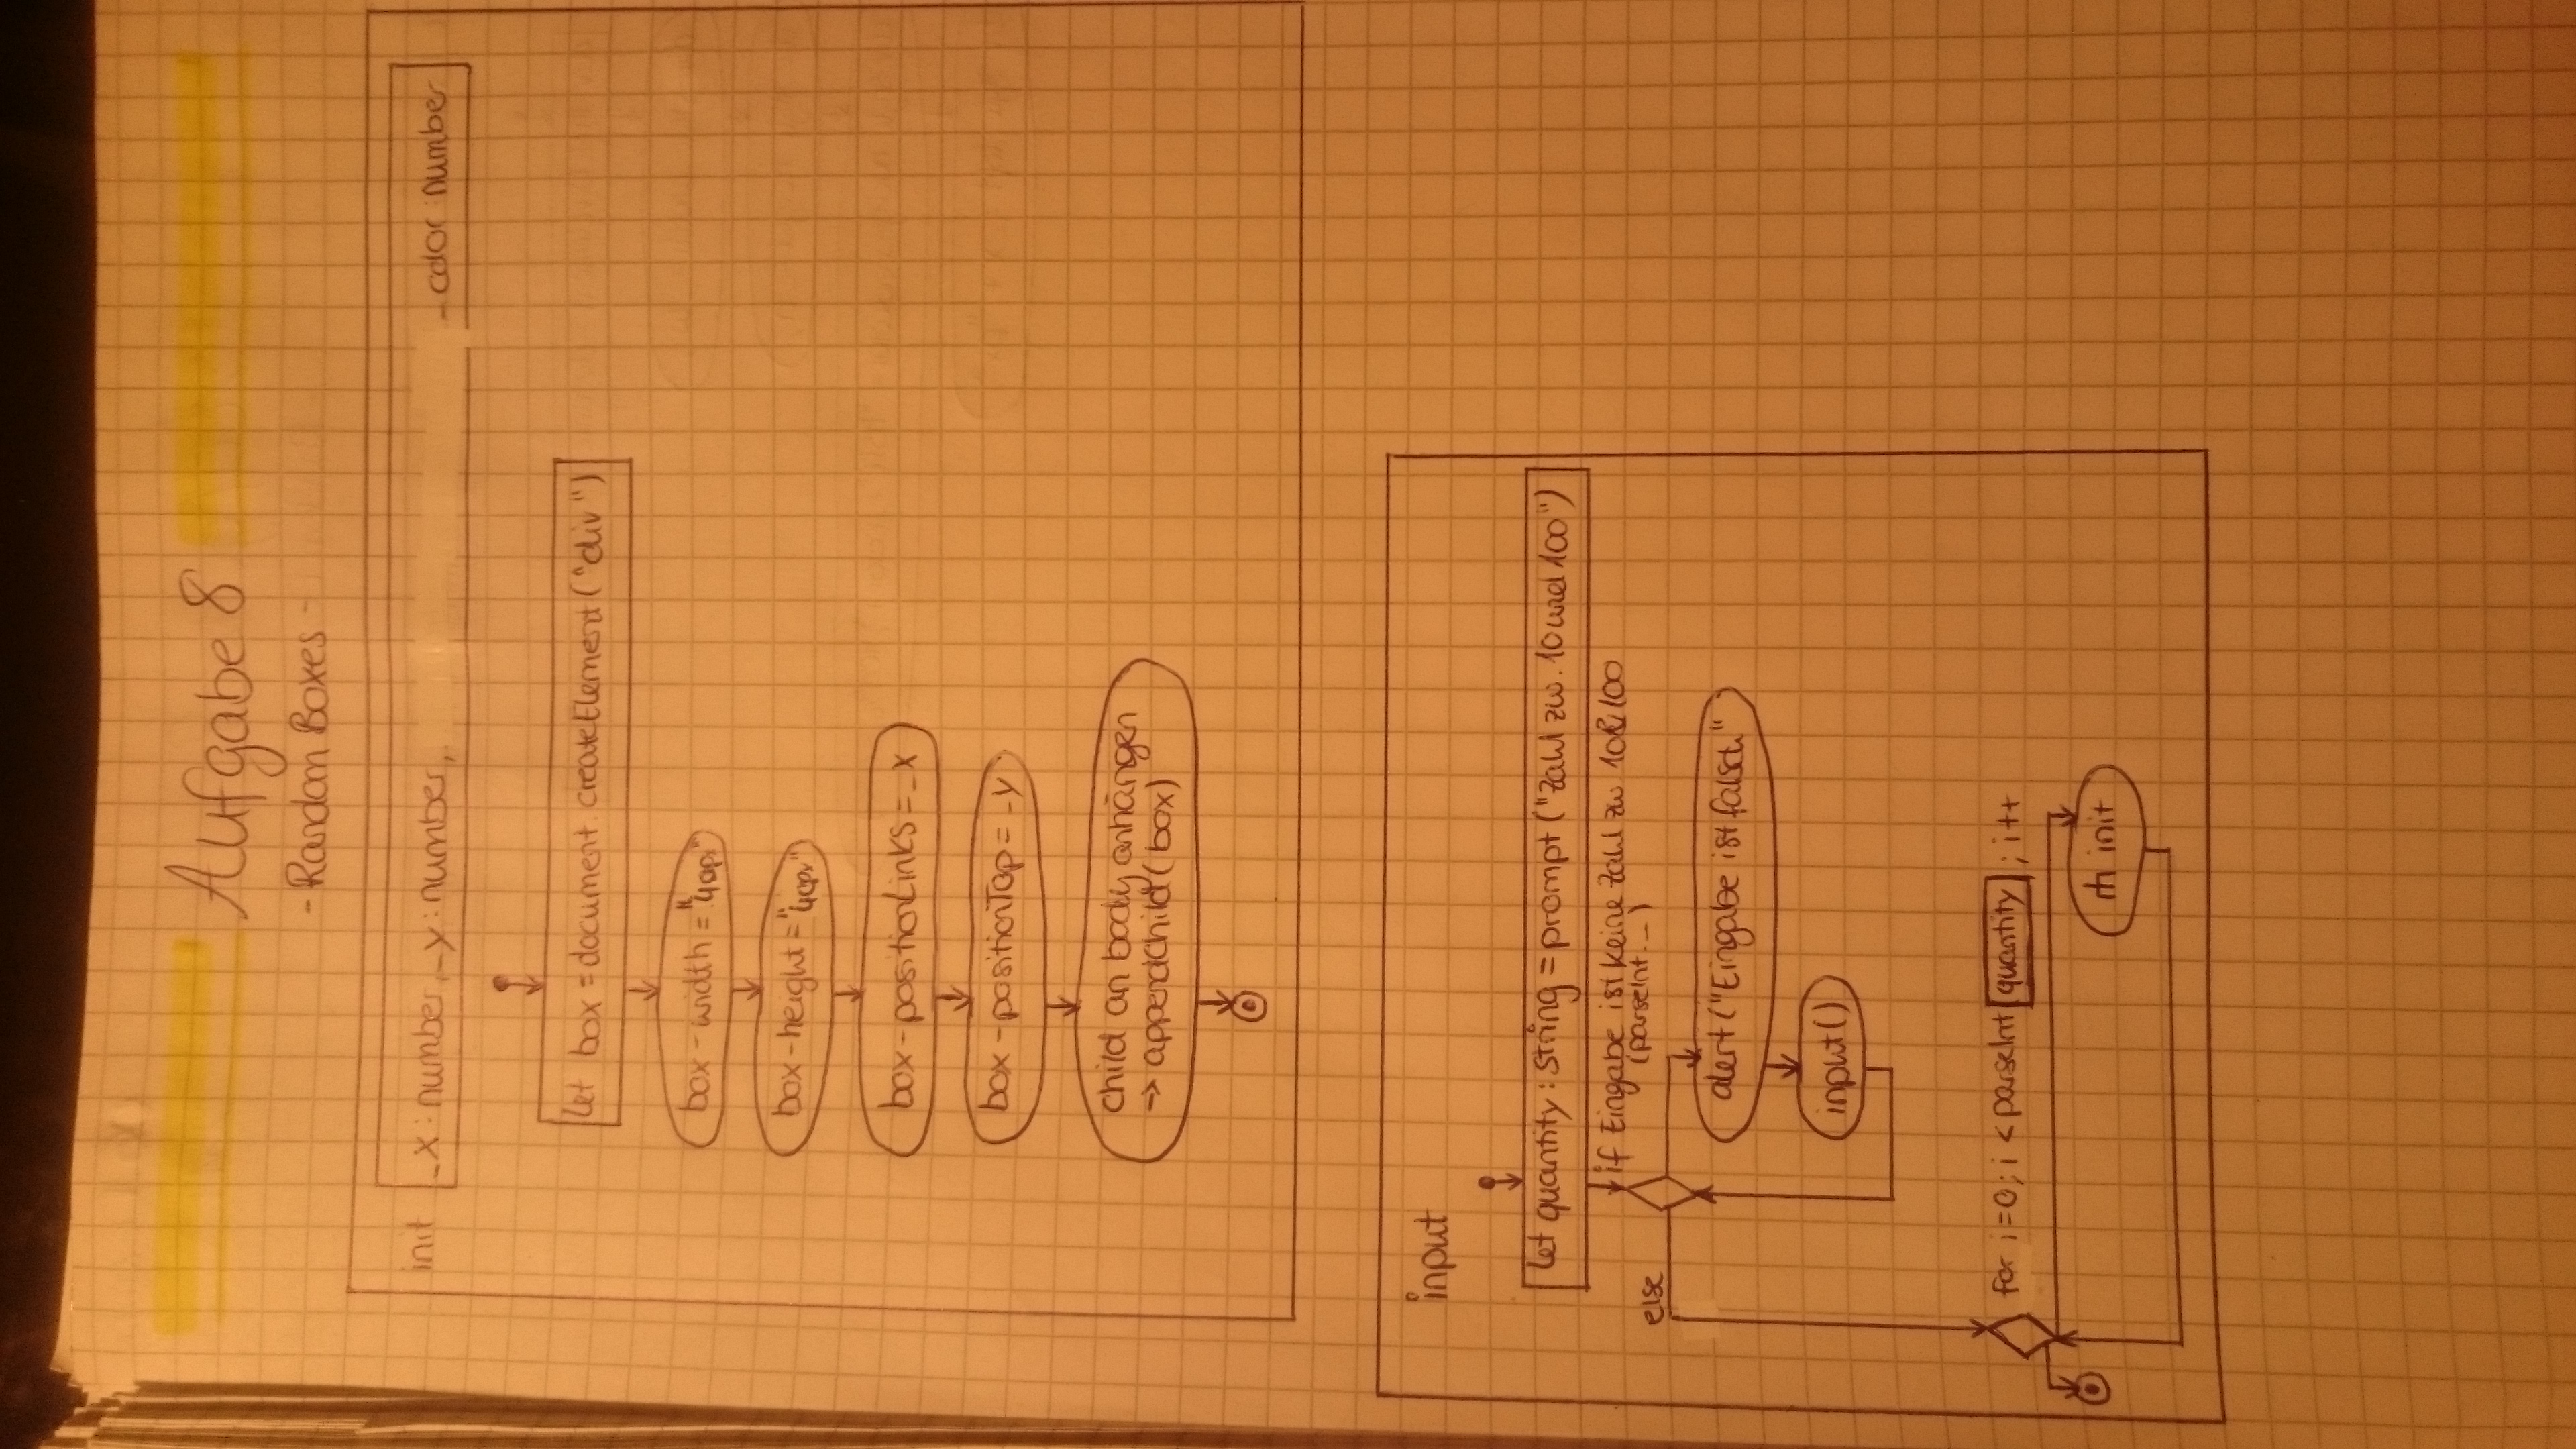 Aufgabe 8
- Random Boxes -
init _x: number, _y: number, _color: number
let box = document.createElement("div")
box-width = "40px"
box-height = "40px"
box-positionLinks = _x
box-positionTop = _y
child an body anhängen
→ appendChild(box)
input
let quantity: string = prompt("Zahl zw. 10 und 100")
if Eingabe ist keine Zahl zw 10&100
(parseInt...)
else
alert("Eingabe ist falsch"
input()
for i=0; i < parseInt quantity ; i++
init